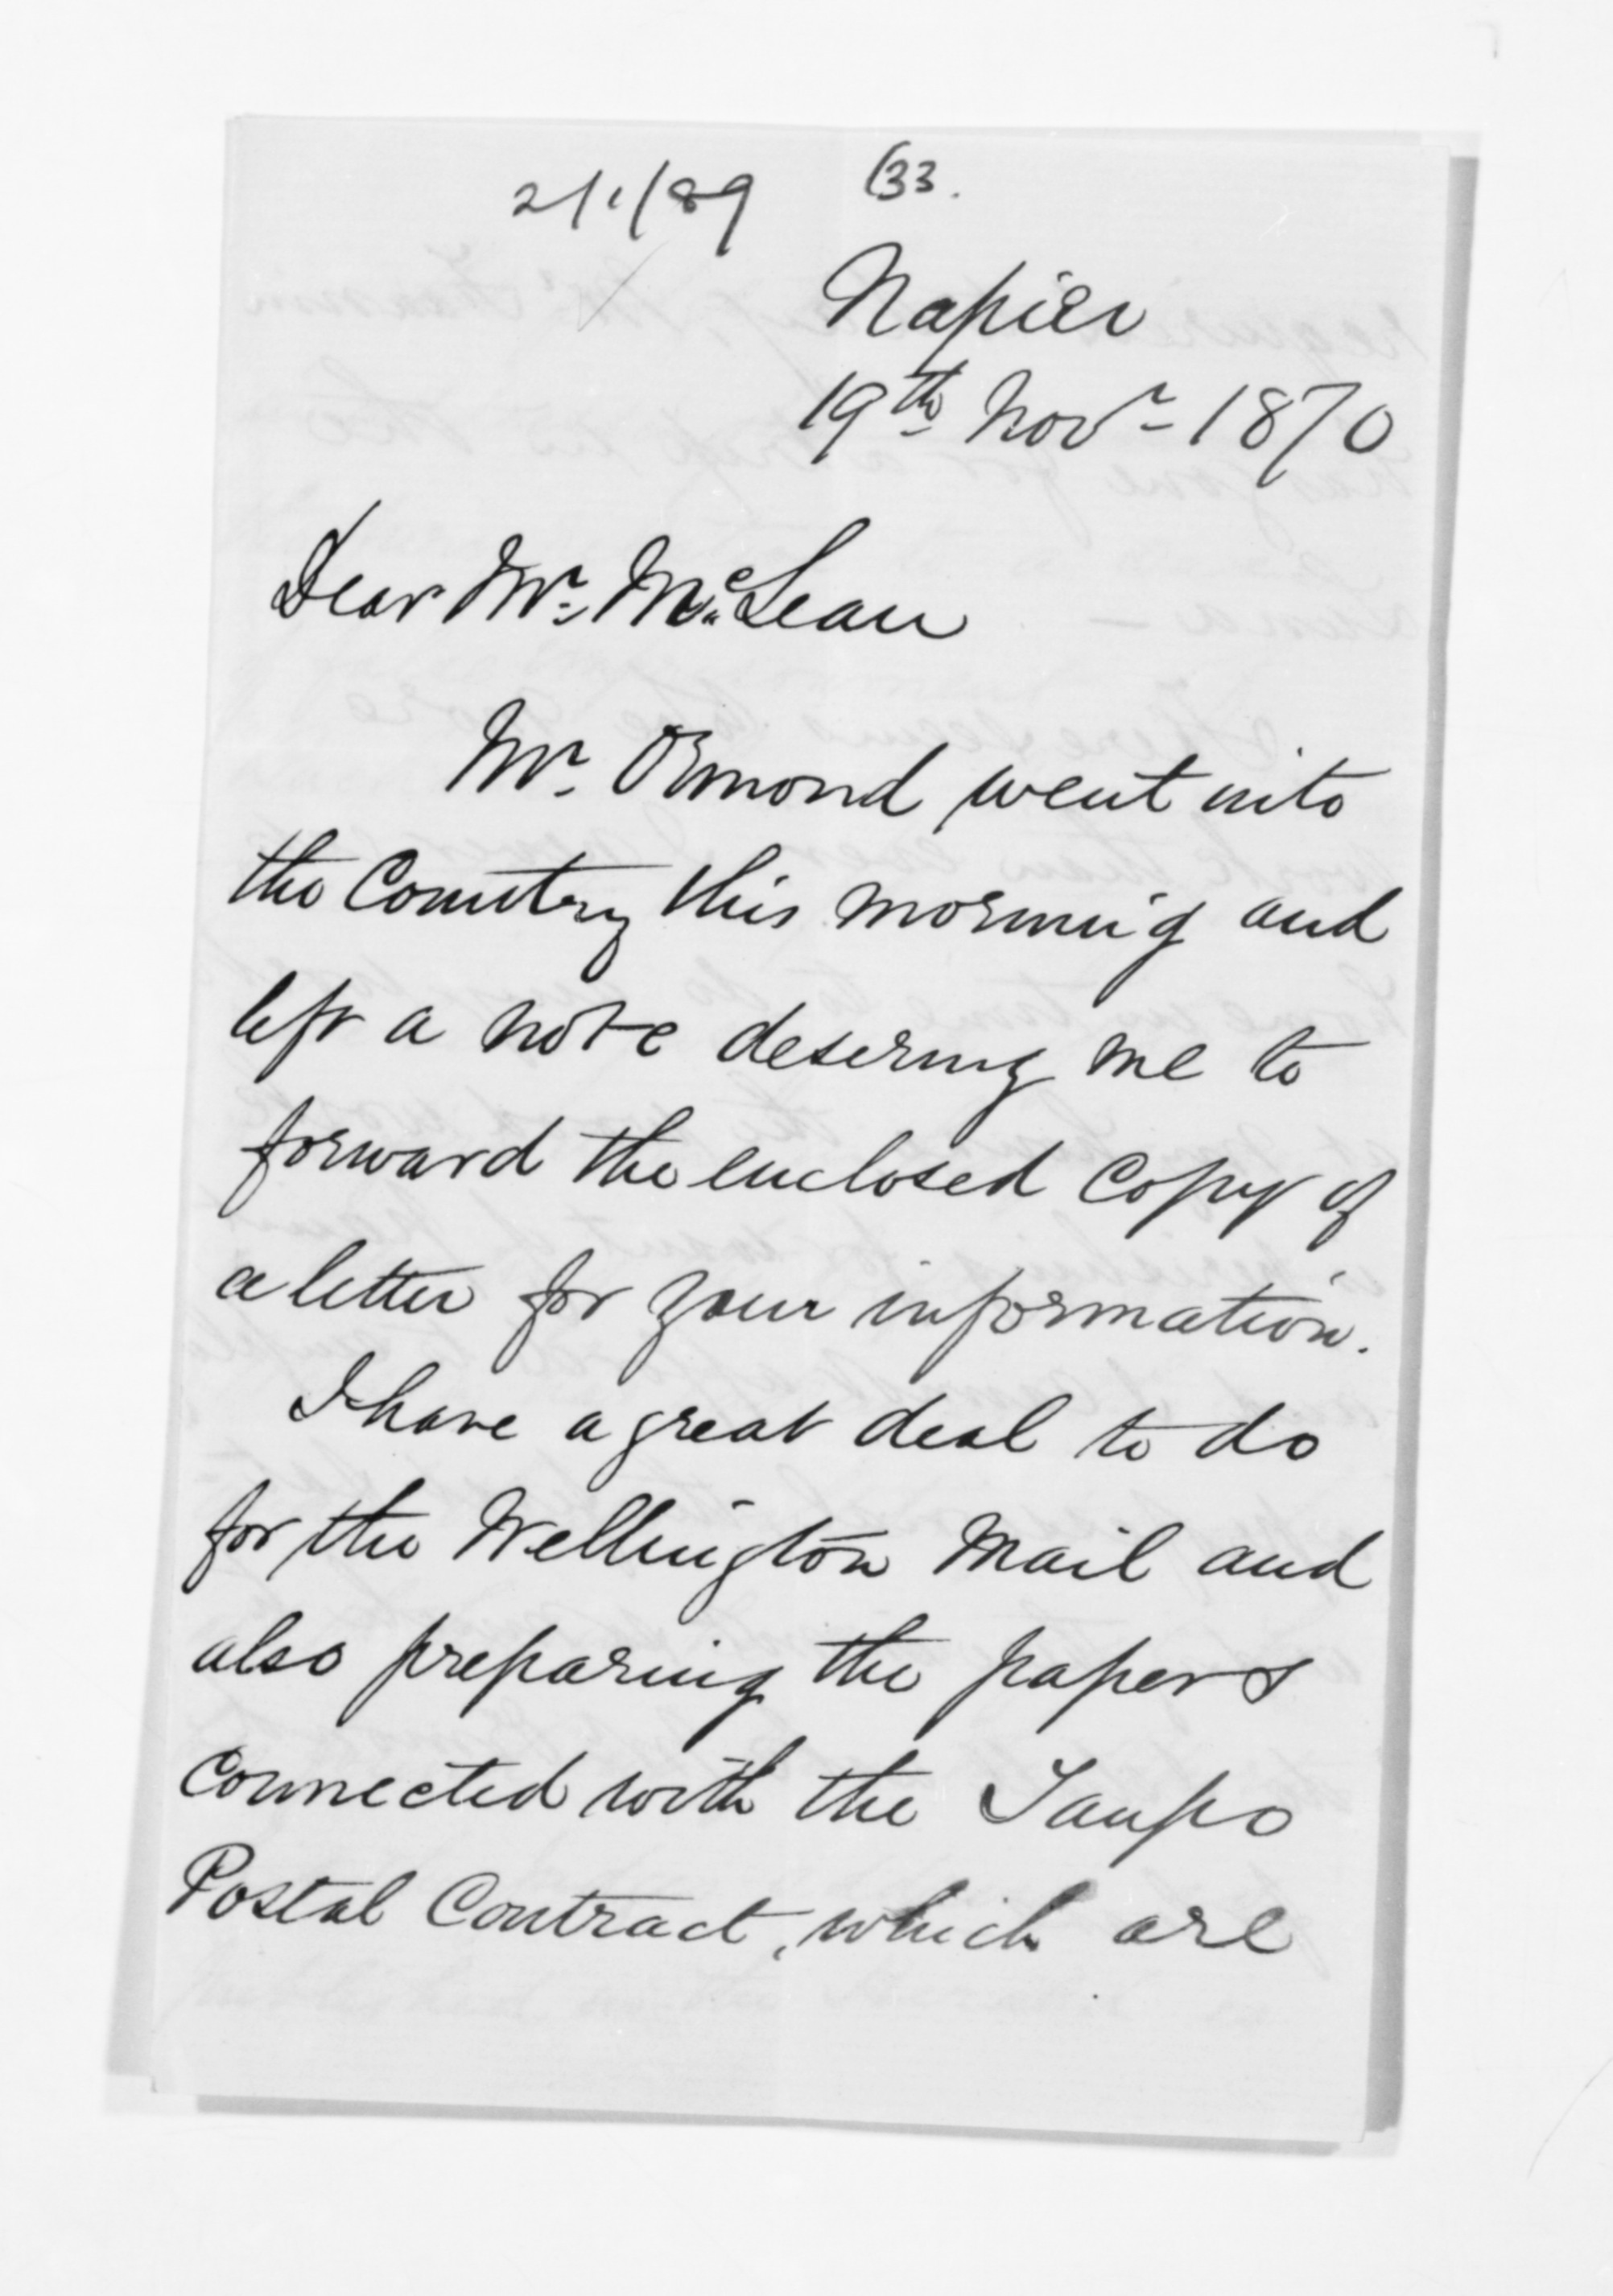 2/1/89 (33.
Napier
19th Novr 1870
Dear Mr. McLean
Mr. Ormond went into
the Country this morning and
left a note desering me to
forward the enclosed Copy of
a letter for your information.
I have a great deal to do
for the Wellington Mail and
also preparing the papers
connected with the Taupo
Postal Contract, which are